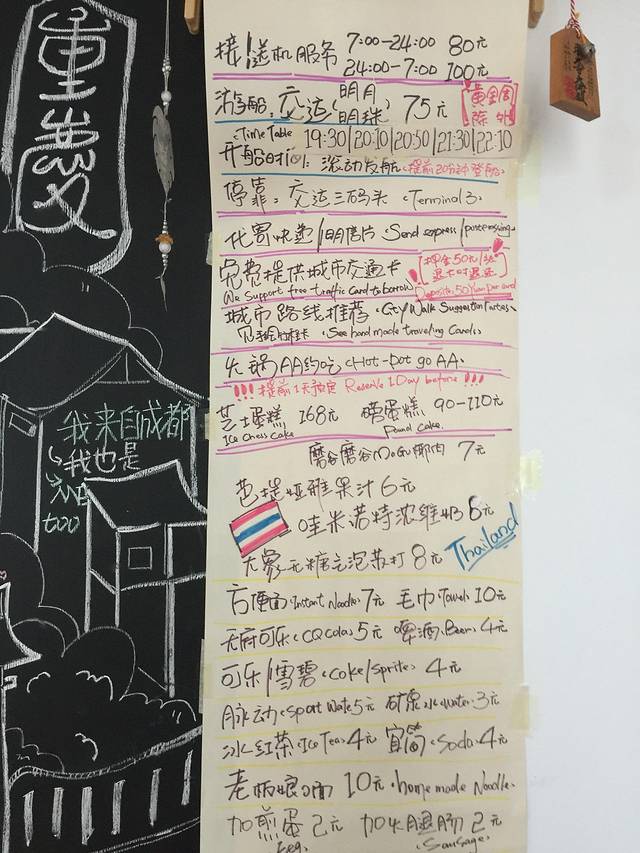 重庆
我来自成都
我也是
too
接/送机服务 7:00-24:00 80元
24:00-7:00 100元
游船:交运 明月 明珠 75元 黄金周除外
Time Table 19:30|20:10|20:50|21:30|22:10
开船时间: 滚动发航 (提前20分钟登船)
停靠:交运三码头 (Terminal 3)
代寄快递/明信片 Send express/
免费提供城市交通卡 [押金50元/张 退卡时退还]
We support free traffic card to borrow Deposite 50 Yuan per card
城市路线推荐 City Walk Suggestion
See hand made traveling Cards
火锅AA约吃 Hot-pot go AA
!!! 提前1天预定 Reserve 1 Day before !!!
芝士蛋糕 168元 磅蛋糕 90-110元
Ice Chess cake Pound cake
磨谷磨谷MoGu椰肉 7元
芭提娅雅果汁 6元
哇米诺特浓维奶 8元
大象无糖气泡苏打 8元 Thailand
方便面 Instant Noodle 7元 毛巾 Towel 10元
天府可乐 (CQ Cola) 5元 啤酒 Beer 4元
可乐/雪碧 (Coke/Sprite) 4元
脉动 Sport Wate 5元 矿泉水 water 3元
冰红茶 Ice Tea 4元 宜简 Soda 4元
老板娘面 10元 home made Noodle
加煎蛋 2元 加火腿肠 2元
egg Sausage